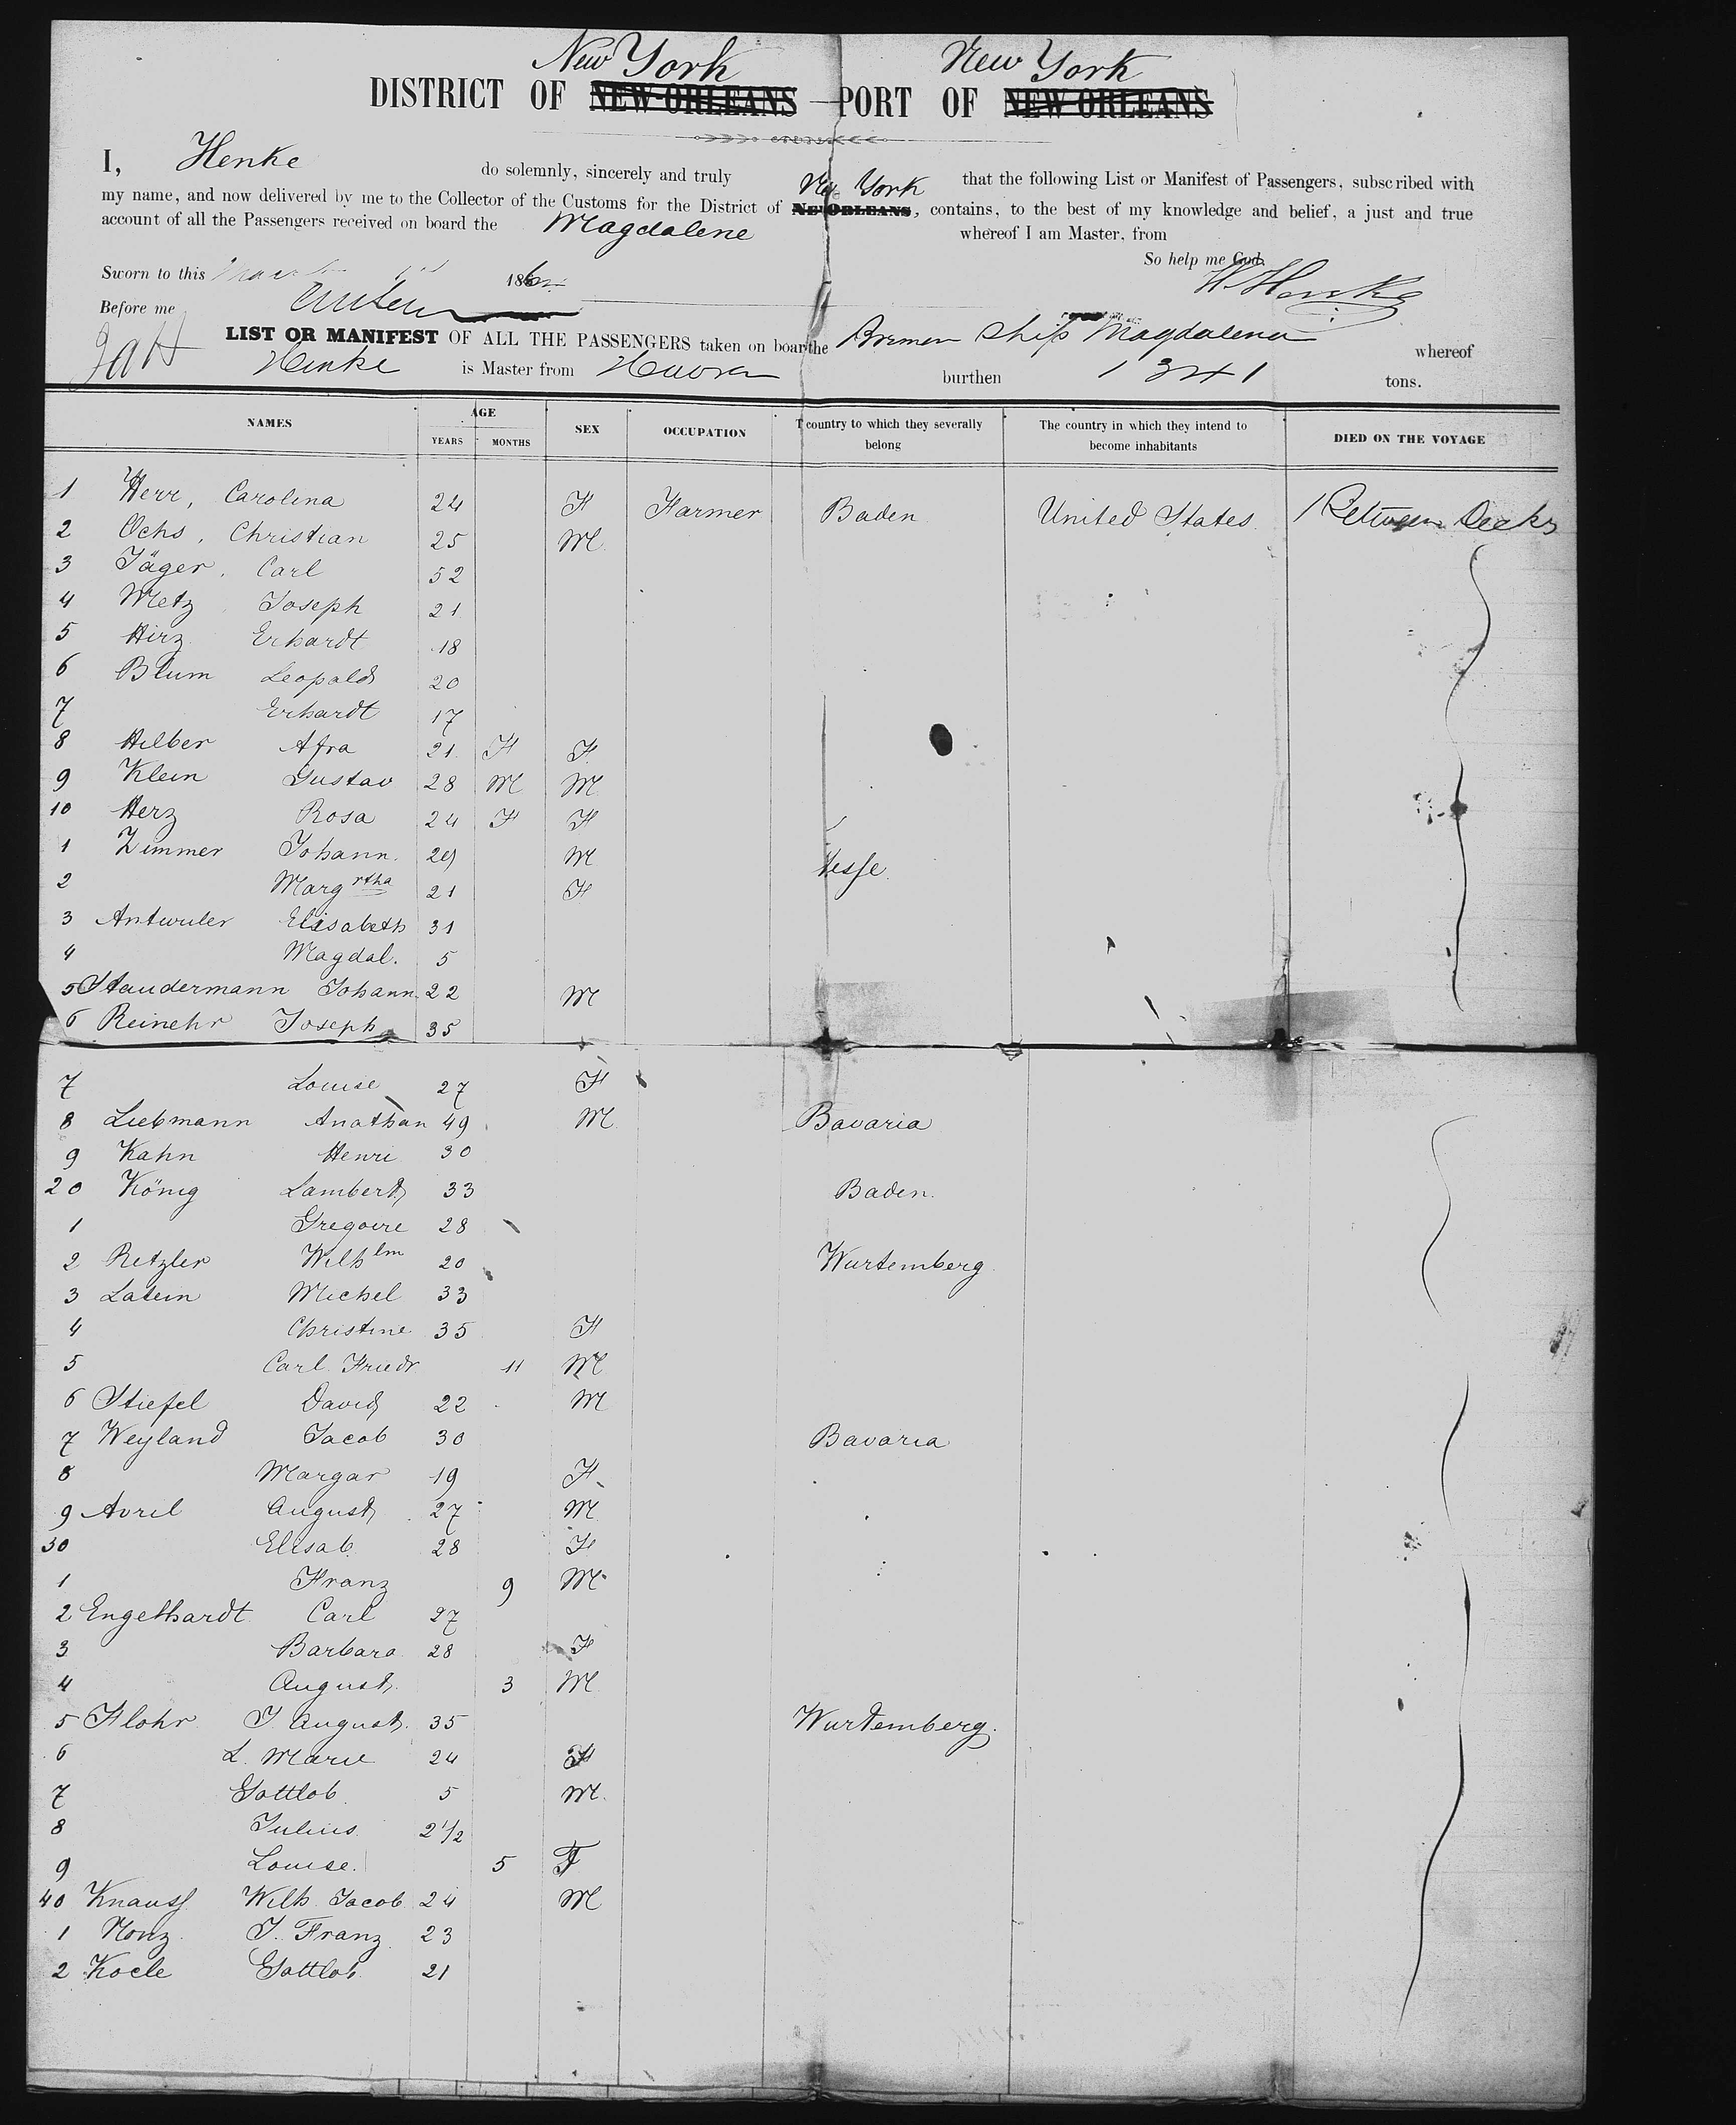 New York New York
DISTRICT OF NEW-ORLEANS — PORT OF NEW ORLEANS
I, Henke do solemnly, sincerely and truly New York that the following List or Manifest of Passengers, subscribed with
my name, and now delivered by me to the Collector of the Customs for the District of NEW ORLEANS, contains, to the best of my knowledge and belief, a just and true
account of all the Passengers received on board the Magdalene whereof I am Master, from
So help me God.
Sworn to this 186 W. Henke
Before me
LIST OR MANIFEST OF ALL THE PASSENGERS taken on board the Bremen Ship Magdalena whereof
Henke is Master from Havre burthen 1341 tons.
NAMES AGE SEX OCCUPATION country to which they severally belong The country in which they intend to become inhabitants DIED ON THE VOYAGE
YEARS MONTHS
1 Herr, Carolina 24 F Farmer Baden United States Between Decks
2 Ochs, Christian 25 M
3 Jäger, Carl 52
4 Metz Joseph 21
5 Hirz Erhardt 18
6 Blum Leopold 20
7 Erhardt 17
8 Hilber Afra 21 F F
9 Klein Gustav 28 M M
10 Herz Rosa 24 F F
1 Zimmer Johann. 29 M Hesse
2 Margrtha 21 F
3 Antwuler Elisabeth 31
4 Magdal. 5
5 Staudermann Johann 22 M
6 Reinehr Joseph 35
7 Louise 27 F
8 Liebmann Anathan 49 M Bavaria
9 Kahn Henri 30
20 König Lambert 33 Baden.
1 Gregoire 28
2 Retzler Wilhlm 20 Wurtemberg
3 Latein Michel 33
4 Christine 35 F
5 Carl Friedr 11 M
6 Stiefel David 22 M
7 Weyland Jacob 30 Bavaria
8 Margar 19 F
9 Avril August 27 M
30 Elisab. 28 F
1 Franz 9 M
2 Engelhardt Carl 27
3 Barbara 28 F
4 August. 3 M
5 Flohr J. August. 35 Wurtemberg.
6 L. Marie 24 F
7 Gottlob 5 M
8 Julius 2 1/2
9 Louise. 5 F
40 Knauss Wilh. Jacob 24 M
1 Nonz J. Franz 23
2 Kocle Gottlob 21